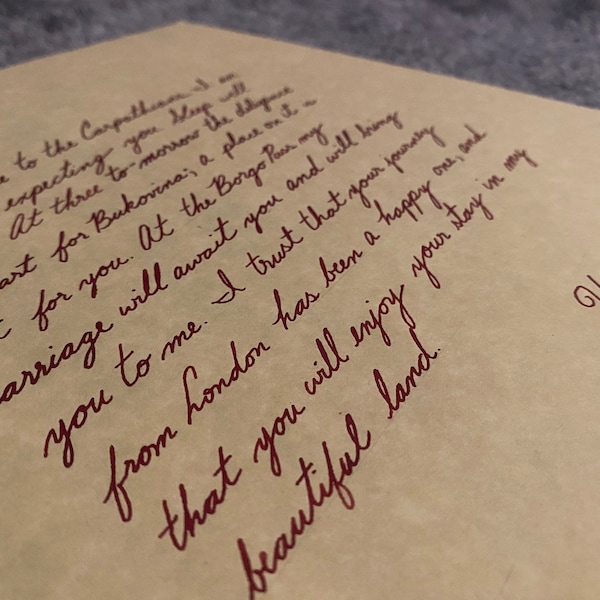 e to the Carpathians. I am
expecting you. Sleep will
At three to-morrow the diligence
art for Bukovina; a place on it
t for you. At the Borgo Pass my
arriage will await you and will bring
you to me. I trust that your journey
from London has been a happy one, and
that you will enjoy your stay in my
beautiful land.